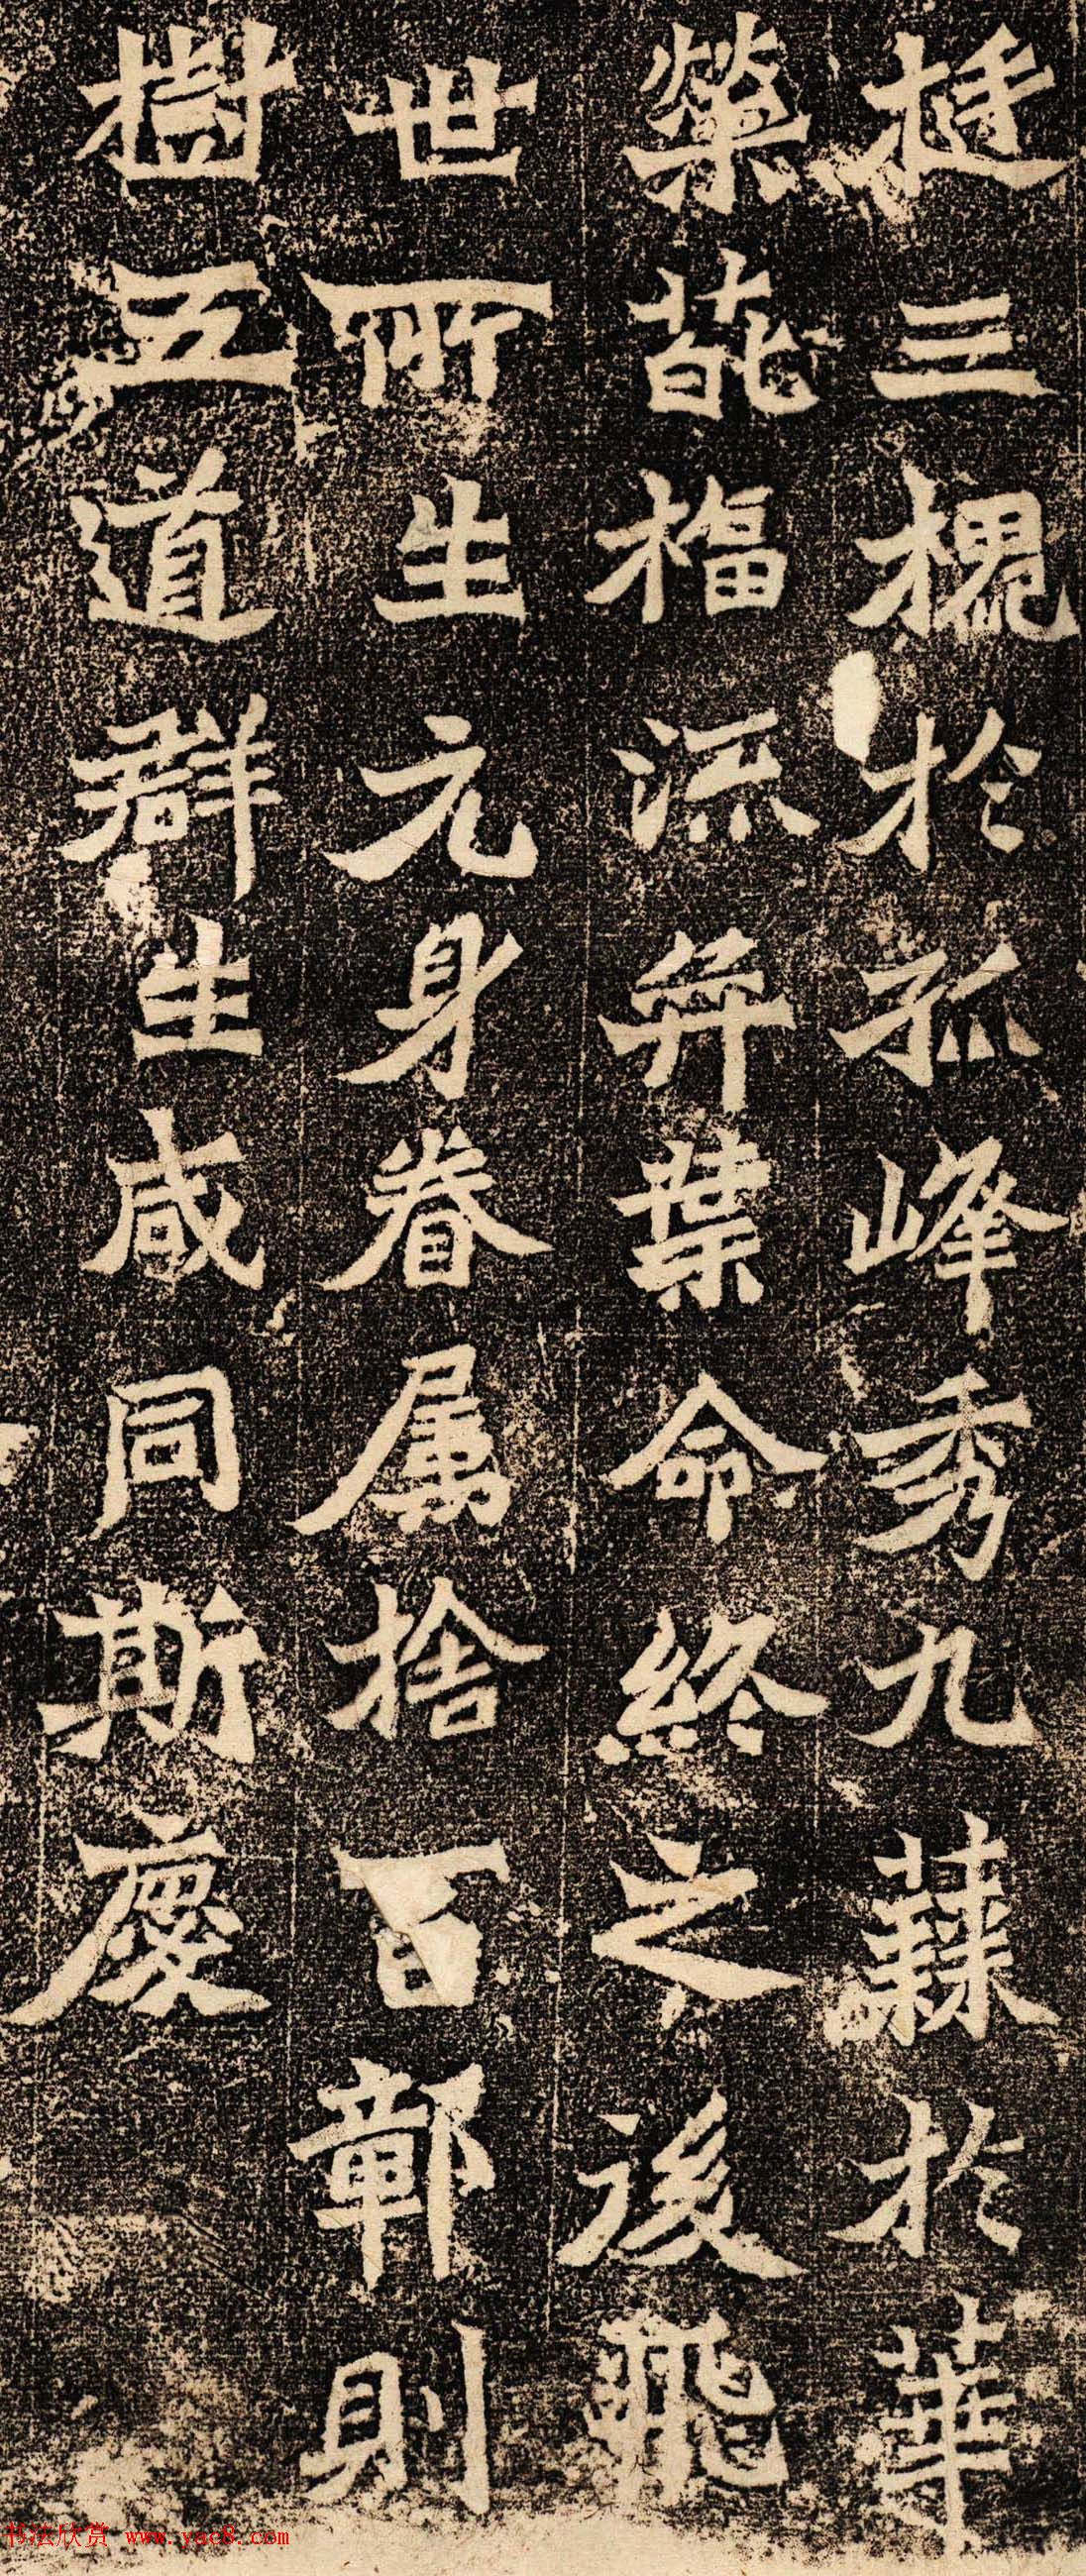 挺三槐於孤峰秀九蕀於華
榮芘福流弈葉命終之後飛
世所生元身眷属捨百鄣則
樹五道群生咸同斯慶
书法欣赏 www.yac8.com